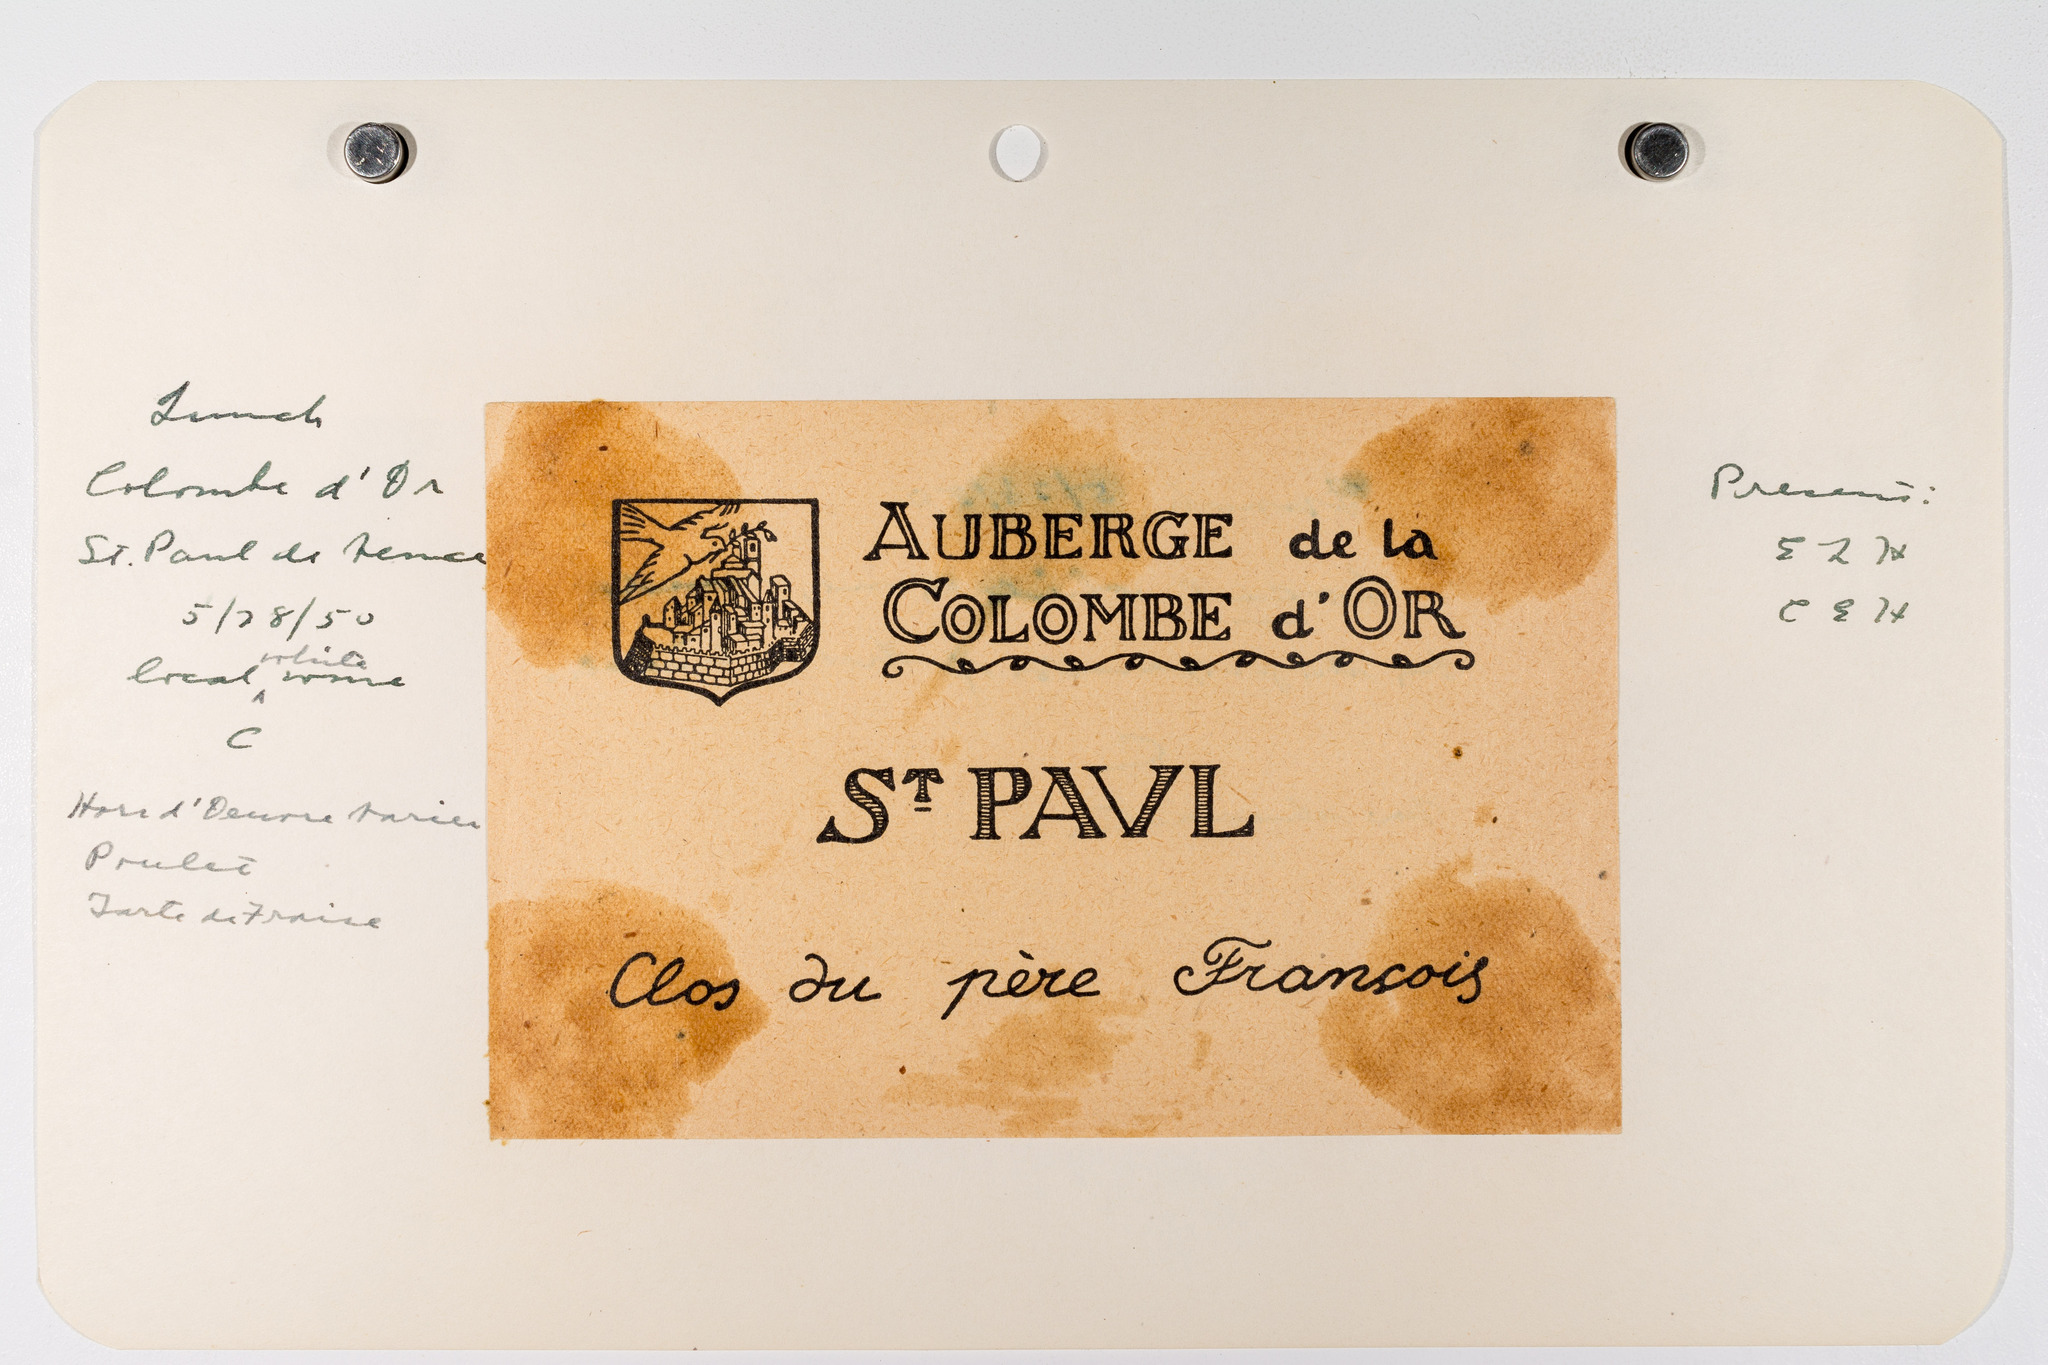 Lunch
Colombe d'Or
St. Paul de Vence
5/28/50
local white wine
C
Hors d'Oeuvre Varier
Poulet
Tarte de Fraise
AUBERGE de la
COLOMBE d'OR
ST PAVL
Clos du père François
Present:
E L H
C E H